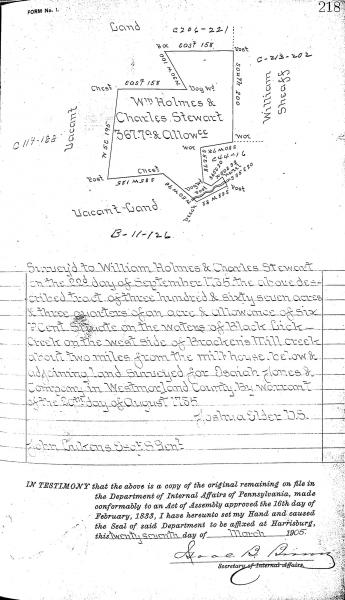 FORM No. 1.
218
Land
C 206-221
Woc
East 158
Post
C-213-202
South 200
William
Sheaff
Chest
East 158
Dog Wd
Wm Holmes &
Charles Stewart
367.7a & Allowce
C 117-188
Vacant
Woc
Post
Chest
Vacant Land
B-11-126
Survey'd to William Holmes & Charles Stewart
on the 22nd day of September 1785 the above des-
cribed tract of three hundred & sixty seven acres
& three quarters of an acre & allowance of Six
P Cent Situate on the waters of Black Lick
Creek on the west side of Bracken's Mill creek
about two miles from the mill house below &
adjoining land surveyed for Isaiah Jones &
Company in Westmorland County by warrant
of the 20th day of August 1785.
Joshua Elder D.S.
John Lukens Esqr S Genl
IN TESTIMONY that the above is a copy of the original remaining on file in
the Department of Internal Affairs of Pennsylvania, made
conformably to an Act of Assembly approved the 16th day of
February, 1833, I have hereunto set my Hand and caused
the Seal of said Department to be affixed at Harrisburg,
this Twenty seventh day of March 1905.
Isaac B. Brown
Secretary of Internal Affairs.